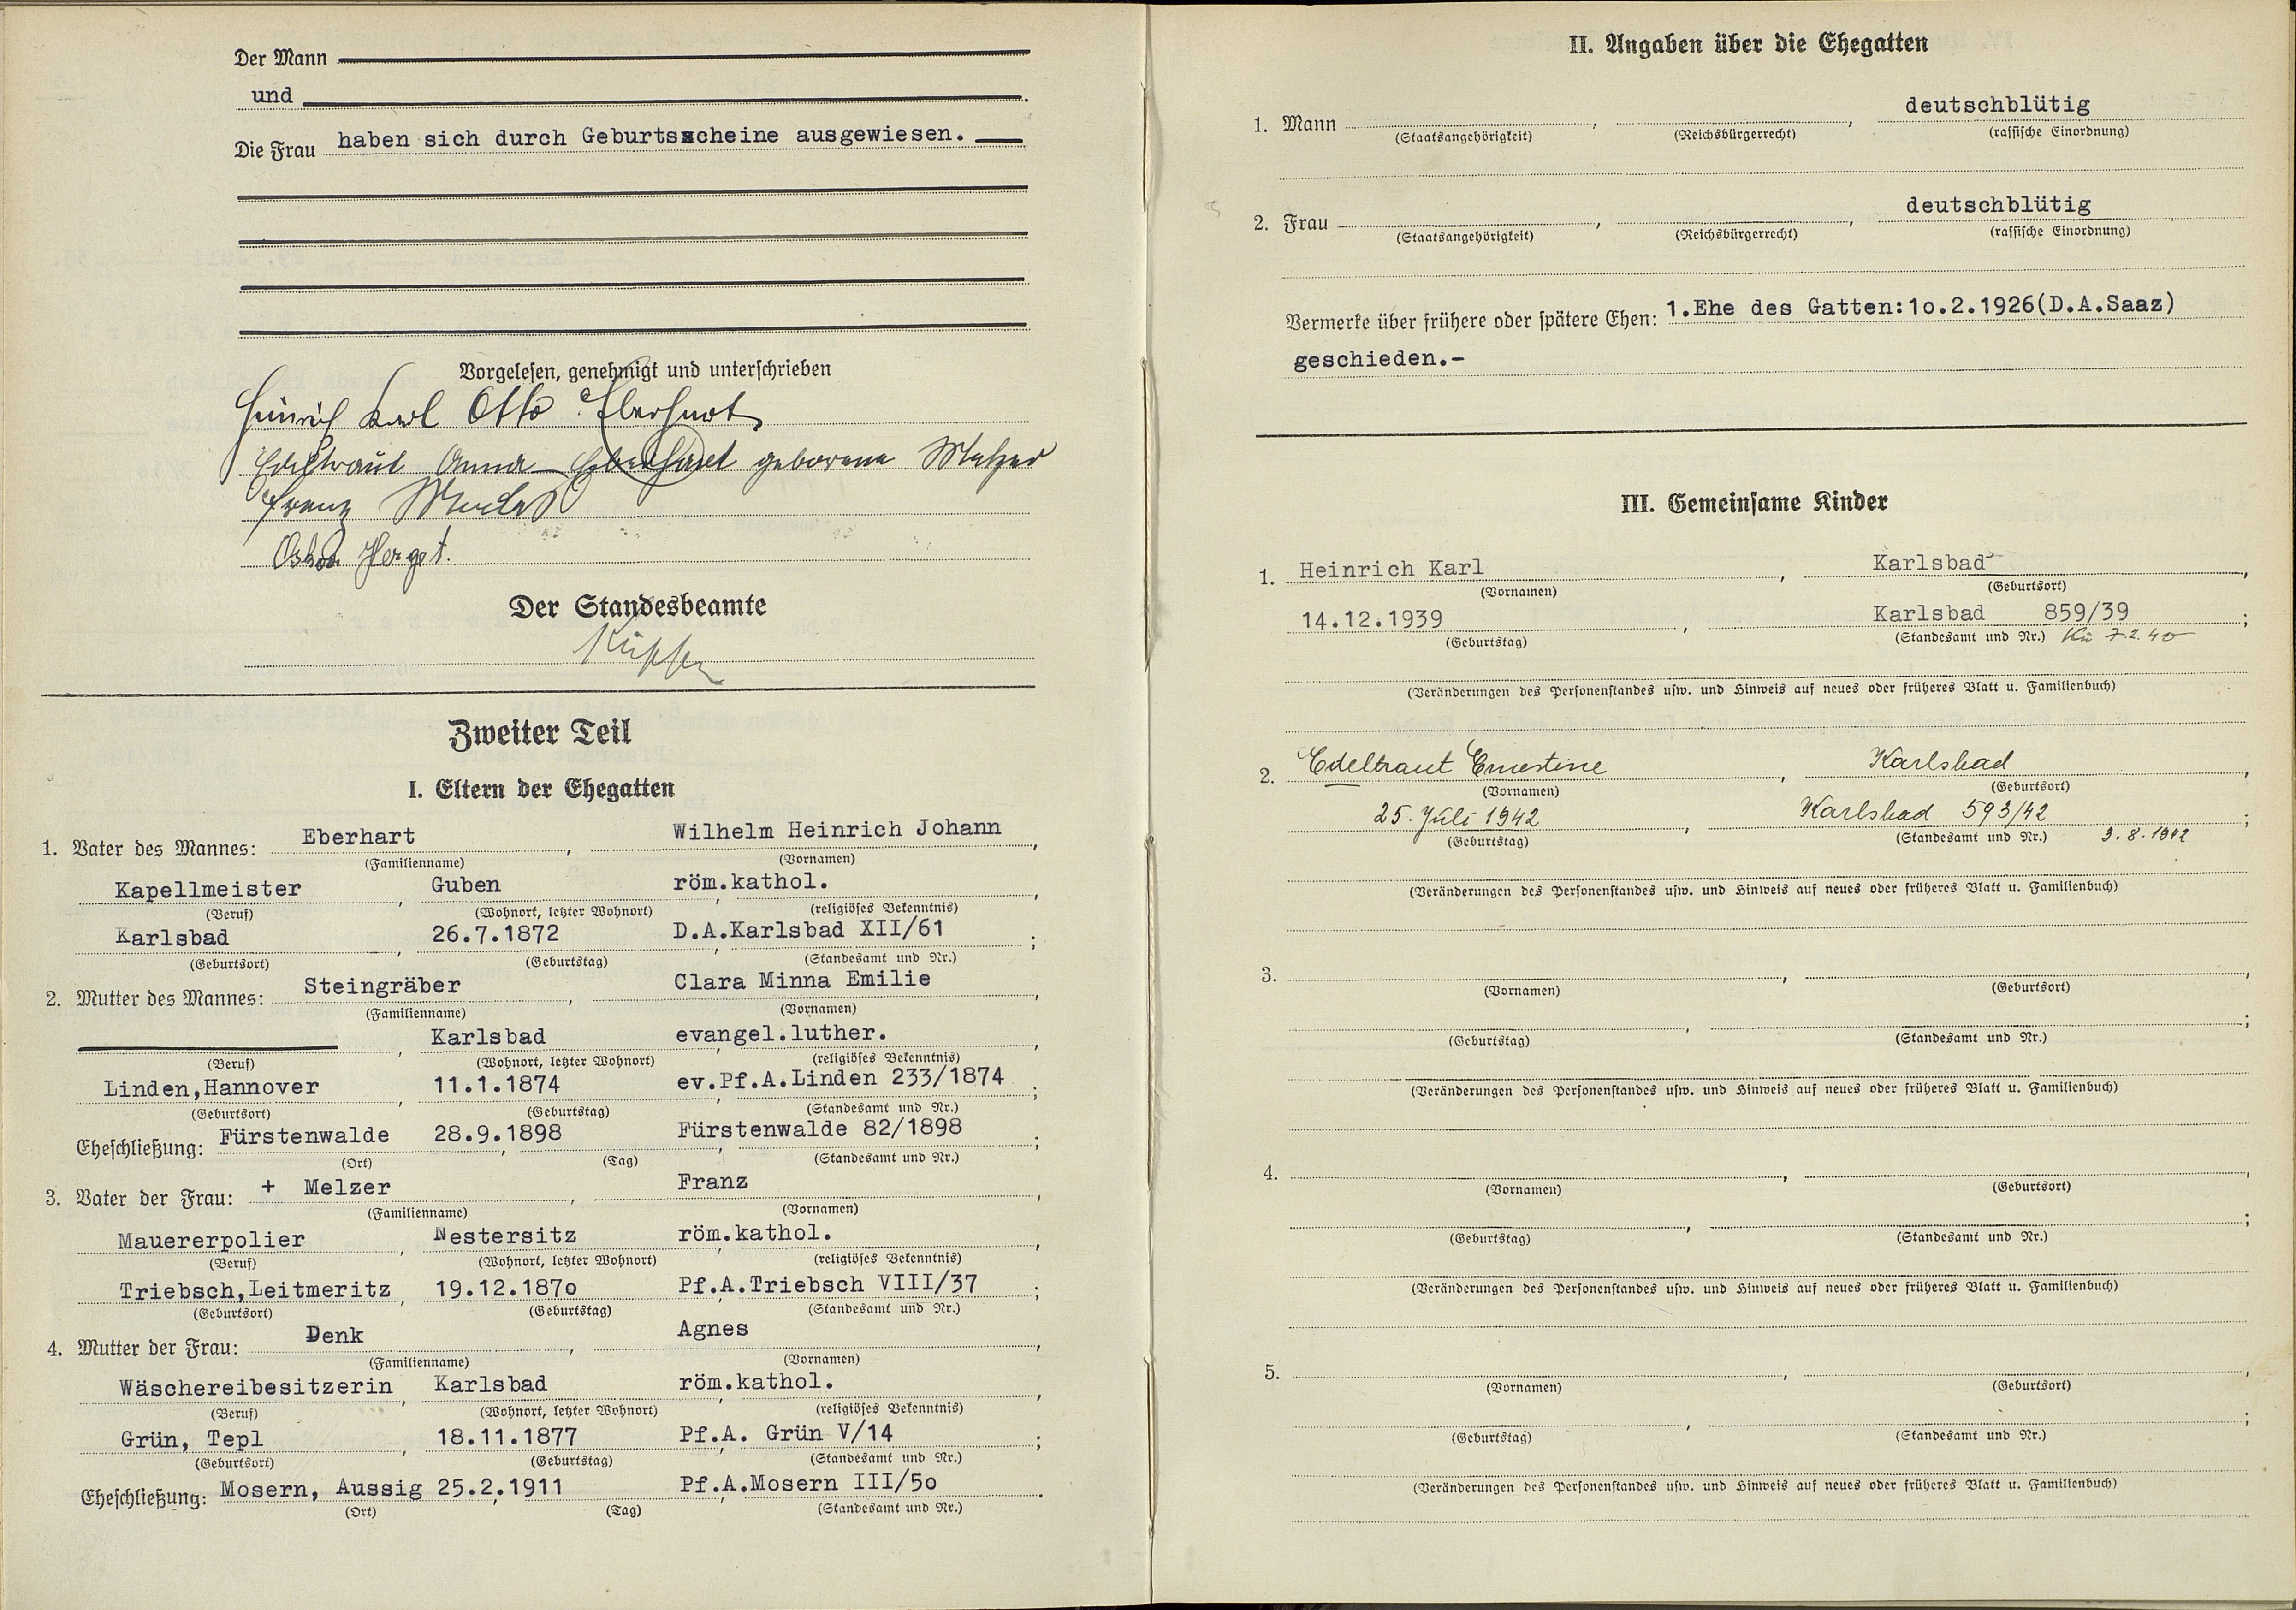 Der Mann
und
Die Frau haben sich durch Geburtsscheine ausgewiesen.
Vorgelesen, genehmigt und unterschrieben
Heinrich Karl Otto Eberhart
Edeltraut Anna Eberhart geborene Melzer
Franz
Oskar Herget.
Der Standesbeamte
Zweiter Teil
I. Eltern der Ehegatten
1. Vater des Mannes: Eberhart , Wilhelm Heinrich Johann ,
(Familienname) (Vornamen)
Kapellmeister , Guben , röm.kathol. ,
(Beruf) (Wohnort, letzter Wohnort) (religiöses Bekenntnis)
Karlsbad , 26.7.1872 , D.A.Karlsbad XII/61 ;
(Geburtsort) (Geburtstag) (Standesamt und Nr.)
2. Mutter des Mannes: Steingräber , Clara Minna Emilie ,
(Familienname) (Vornamen)
, Karlsbad , evangel.luther. ,
(Beruf) (Wohnort, letzter Wohnort) (religiöses Bekenntnis)
Linden,Hannover , 11.1.1874 , ev.Pf.A.Linden 233/1874 ;
(Geburtsort) (Geburtstag) (Standesamt und Nr.)
Eheschließung: Fürstenwalde , 28.9.1898 , Fürstenwalde 82/1898 ;
(Ort) (Tag) (Standesamt und Nr.)
3. Vater der Frau: + Melzer , Franz ,
(Familienname) (Vornamen)
Mauererpolier , Nestersitz , röm.kathol. ,
(Beruf) (Wohnort, letzter Wohnort) (religiöses Bekenntnis)
Triebsch,Leitmeritz , 19.12.187o , Pf.A.Triebsch VIII/37 ;
(Geburtsort) (Geburtstag) (Standesamt und Nr.)
4. Mutter der Frau: Denk , Agnes ,
(Familienname) (Vornamen)
Wäschereibesitzerin , Karlsbad , röm.kathol. ,
(Beruf) (Wohnort, letzter Wohnort) (religiöses Bekenntnis)
Grün, Tepl , 18.11.1877 , Pf.A. Grün V/14 ;
(Geburtsort) (Geburtstag) (Standesamt und Nr.)
Eheschließung: Mosern, Aussig , 25.2.1911 , Pf.A.Mosern III/5o .
(Ort) (Tag) (Standesamt und Nr.)
II. Angaben über die Ehegatten
1. Mann , , deutschblütig
(Staatsangehörigkeit) (Reichsbürgerrecht) (rassische Einordnung)
2. Frau , , deutschblütig
(Staatsangehörigkeit) (Reichsbürgerrecht) (rassische Einordnung)
Vermerke über frühere oder spätere Ehen: 1.Ehe des Gatten:1o.2.1926(D.A.Saaz)
geschieden.-
III. Gemeinsame Kinder
1. Heinrich Karl , Karlsbad ,
(Vornamen) (Geburtsort)
14.12.1939 , Karlsbad 859/39 ;
(Geburtstag) (Standesamt und Nr.) Kü 7.2.40
(Veränderungen des Personenstandes usw. und Hinweis auf neues oder früheres Blatt u. Familienbuch)
2. Edeltraut Ernestine , Karlsbad ,
(Vornamen) (Geburtsort)
25. Juli 1942 , Karlsbad 593/42 ;
(Geburtstag) (Standesamt und Nr.) 3.8.1942
(Veränderungen des Personenstandes usw. und Hinweis auf neues oder früheres Blatt u. Familienbuch)
3. , ,
(Vornamen) (Geburtsort)
, ;
(Geburtstag) (Standesamt und Nr.)
(Veränderungen des Personenstandes usw. und Hinweis auf neues oder früheres Blatt u. Familienbuch)
4. , ,
(Vornamen) (Geburtsort)
, ;
(Geburtstag) (Standesamt und Nr.)
(Veränderungen des Personenstandes usw. und Hinweis auf neues oder früheres Blatt u. Familienbuch)
5. , ,
(Vornamen) (Geburtsort)
, ;
(Geburtstag) (Standesamt und Nr.)
(Veränderungen des Personenstandes usw. und Hinweis auf neues oder früheres Blatt u. Familienbuch)